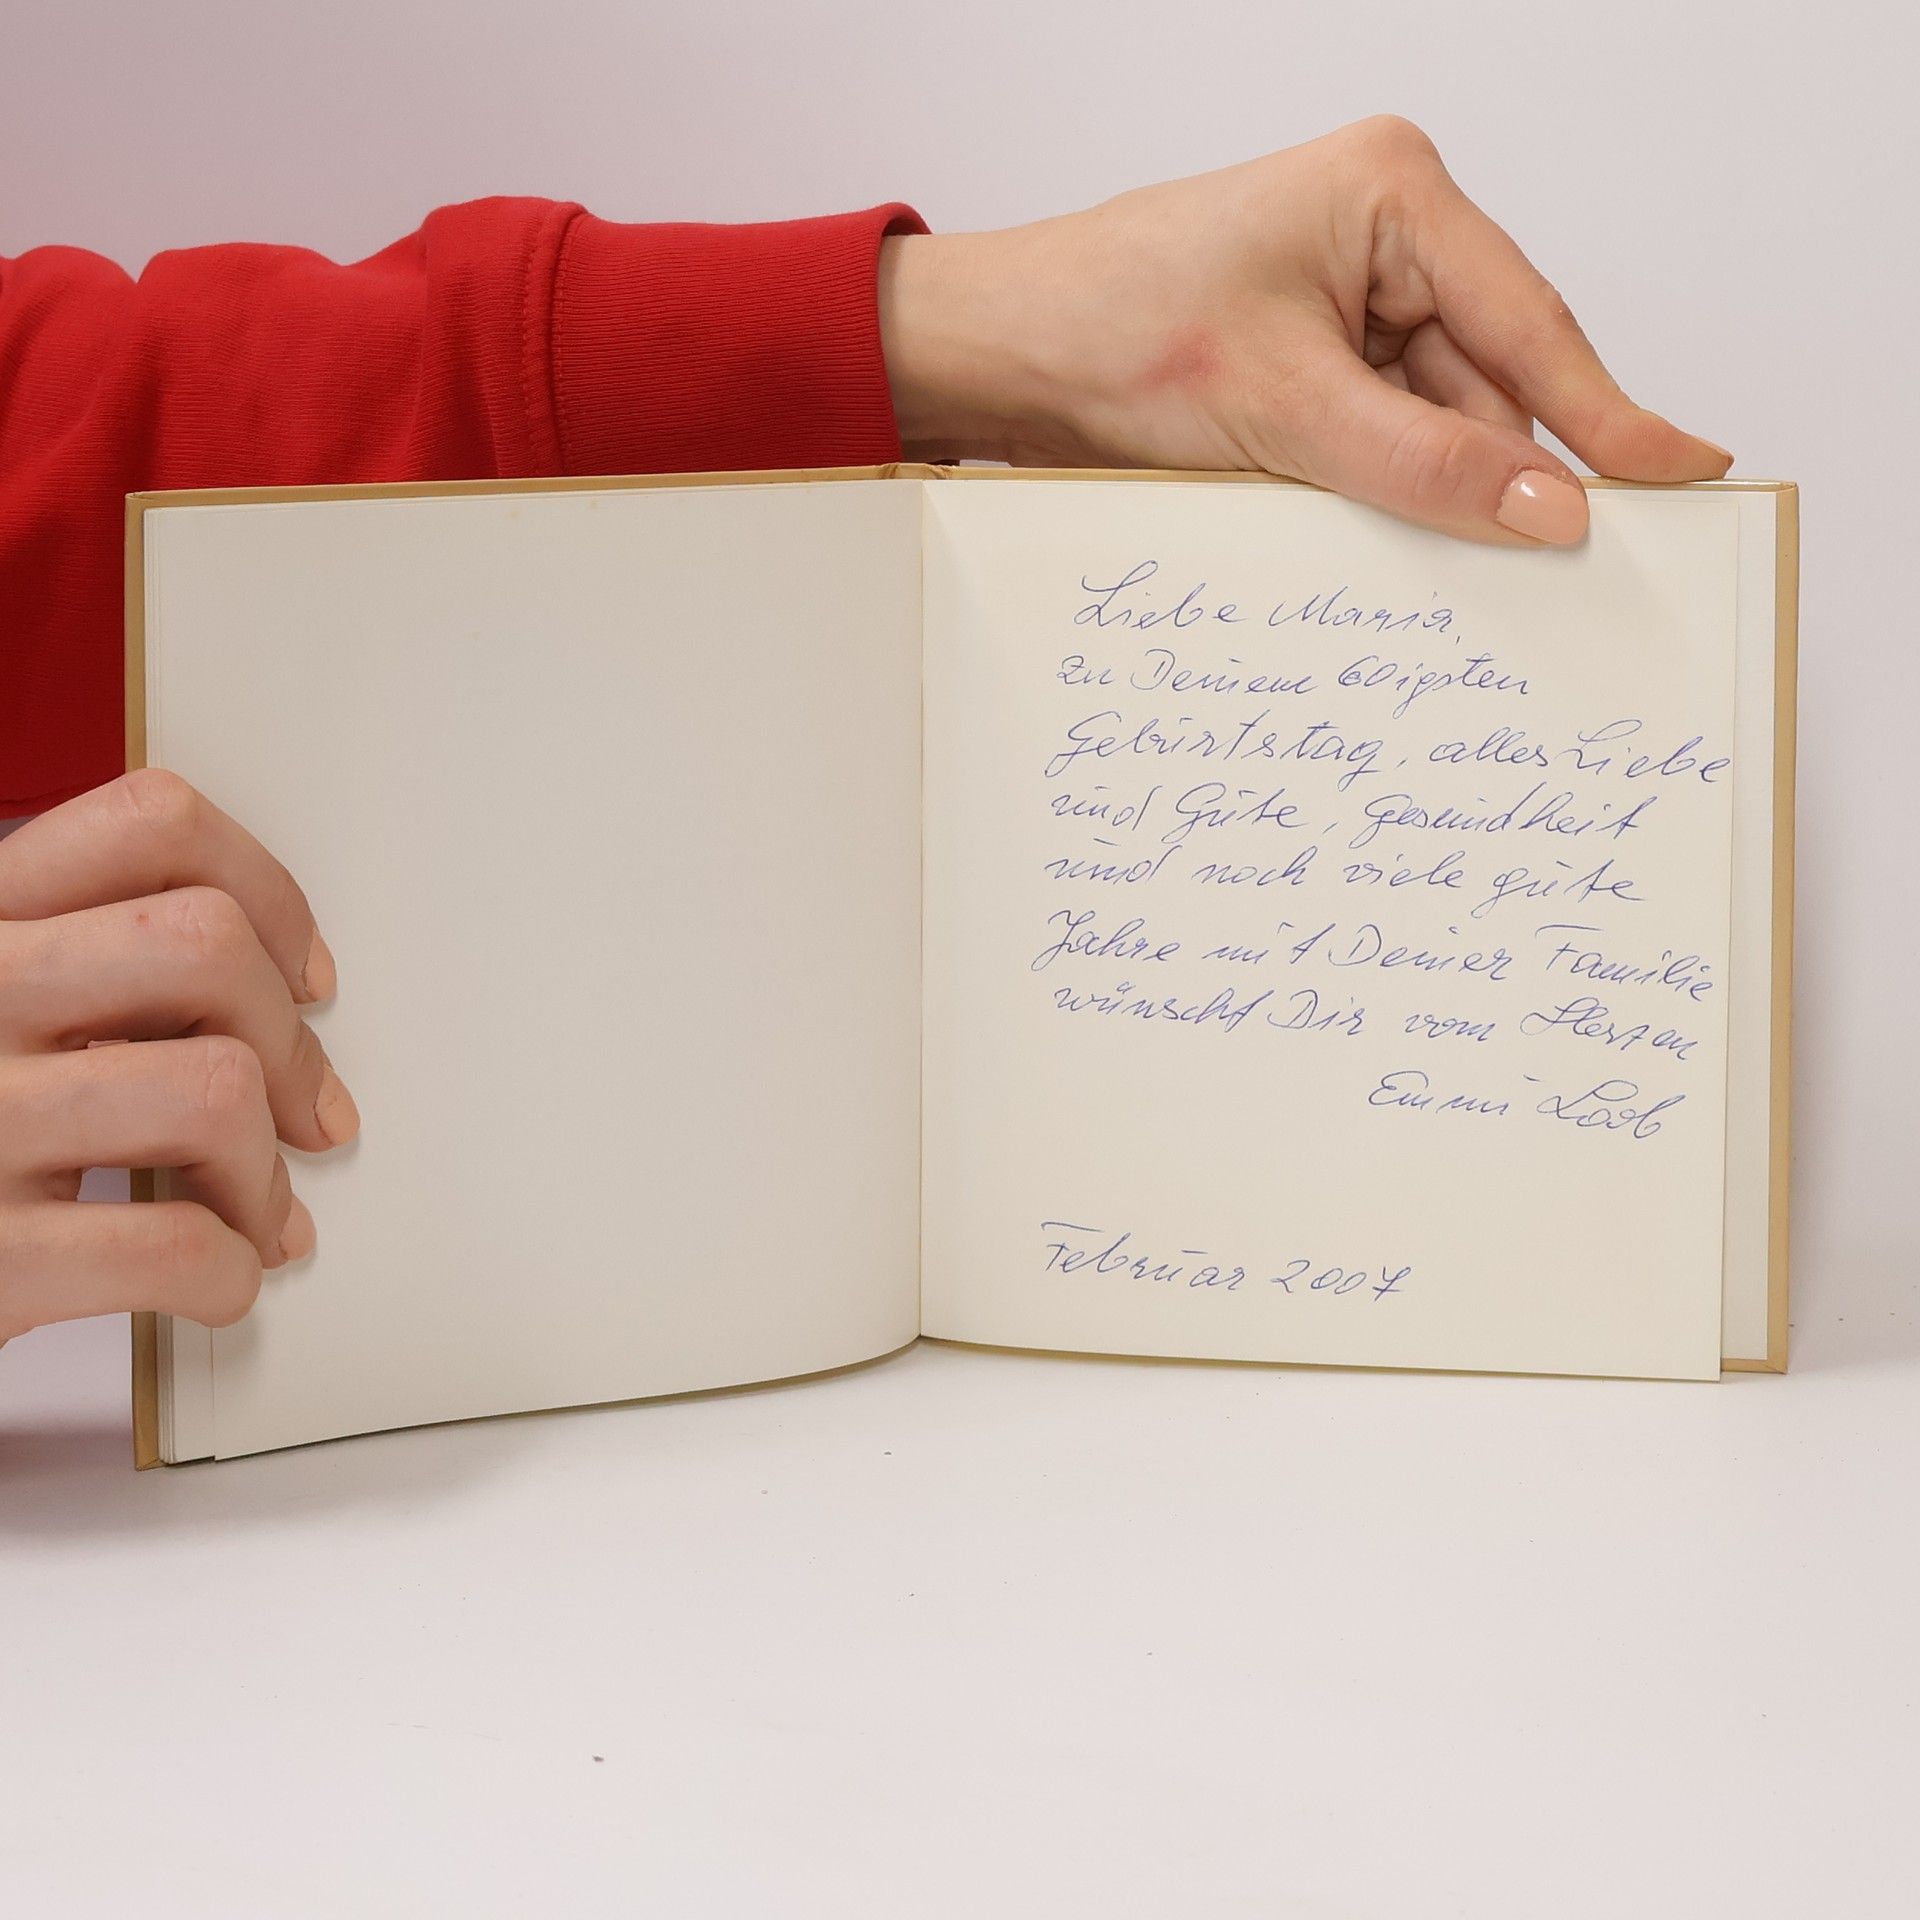 Liebe Maria,
zu Deinem 60igsten
Geburtstag, alles Liebe
und Gute, Gesundheit
und noch viele gute
Jahre mit Deiner Familie
wünscht Dir vom Herzen
Emmi Loob
Februar 2007